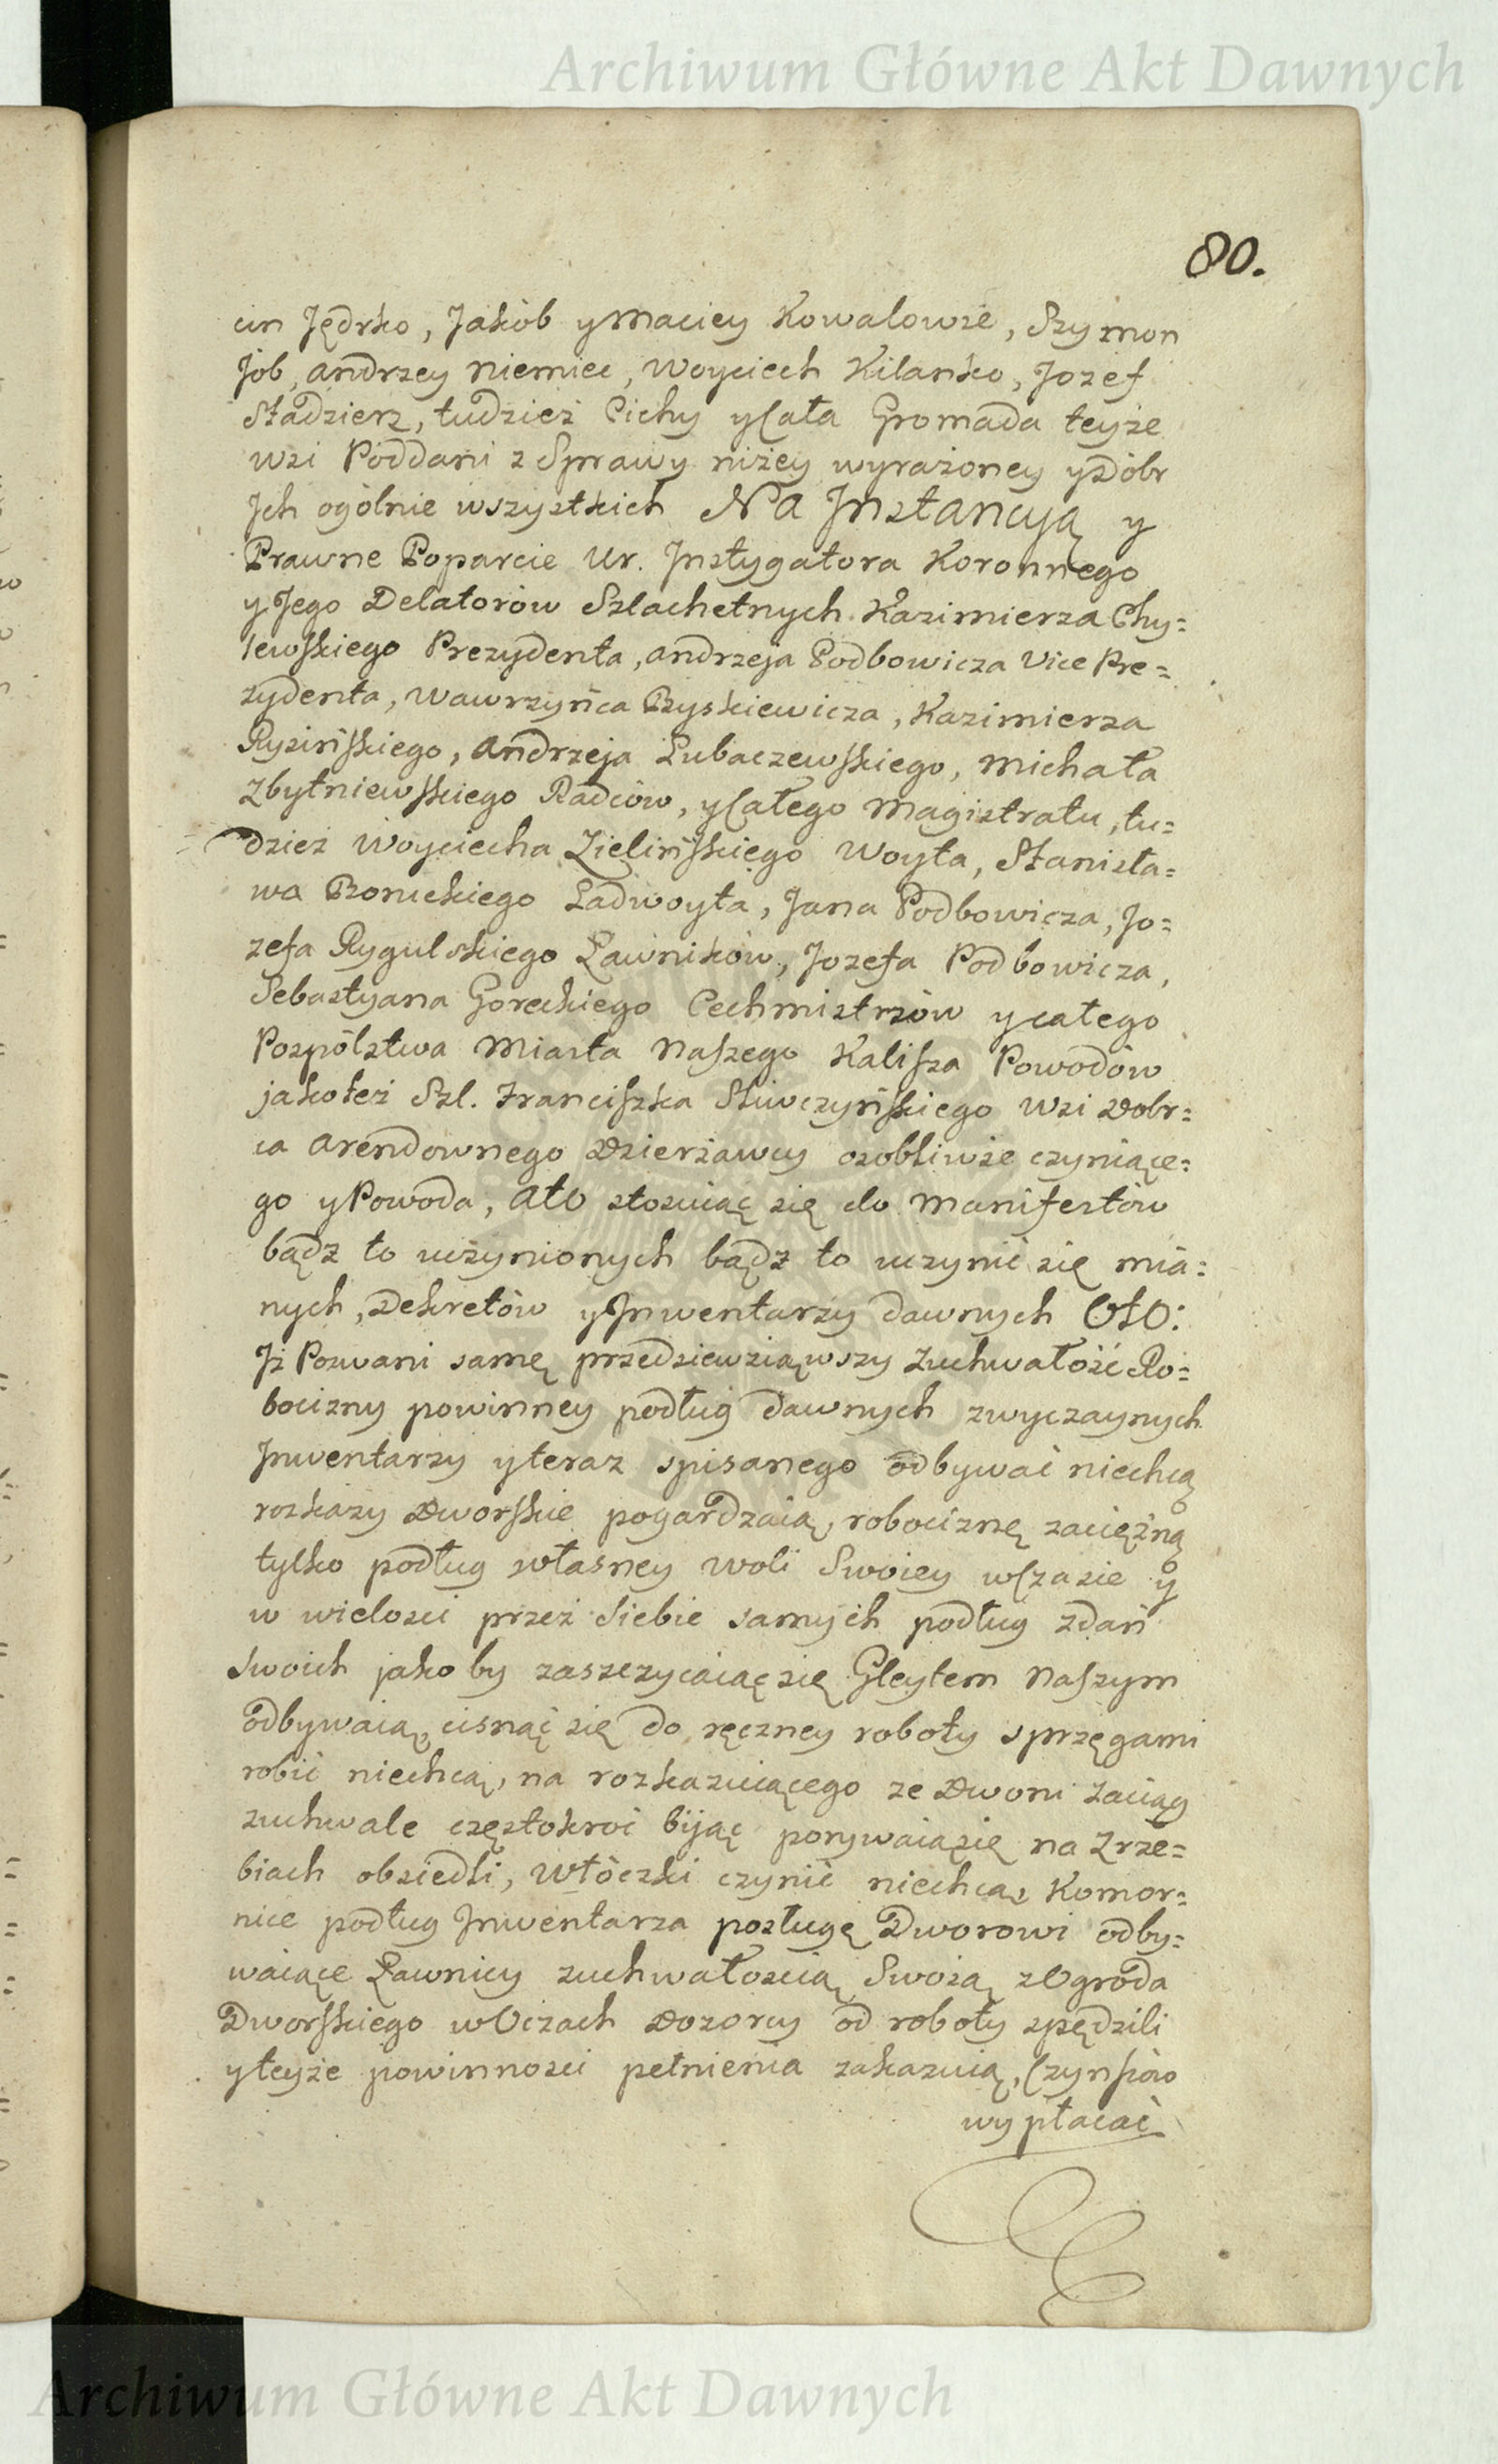 Archiwum Główne Akt Dawnych
80.
cin Jędrko, Jakób y Maciey Kowalowie, Szymon
Jób, Andrzey Niemiec, Woyciech Kilanko, Jozef
Stadzierz, tudzież Cichy y Cała Gromada teyże
wsi Poddani z Sprawy niżey wyrażoney y Dóbr
Jch ogólnie wszystkich Na Jnstancyą y
Prawne Poparcie Ur. Jnstygatora Koronnego
y Jego Delatorów Szlachetnych Kazimierza Chy=
lewskiego Prezydenta, Andrzeja Podbowicza Vice Pre=
zydenta, Wawrzyńca Ryskiewicza, Kazimierza
Rysińskiego, Andrzeja Lubaczewskiego, Michała
Zbytniewskiego Radców, y Całego Magistratu, tu=
dzież Woyciecha Zielińskiego Woyta, Stanisła=
wa Bonickiego Ladwoyta, Jana Podbowicza, Jo=
zefa Rygulskiego Ławników, Jozefa Podbowicza,
Sebastyana Goreckiego Cechmistrzów y całego
Pospólstwa Miasta Naszego Kalisza Powodów
jakoteż Szl. Franciszka Sliwczyńskiego Wsi Dobr=
ca Arendownego Dzierżawcy osobliwie czyniące=
go y Powoda, Ato stosuiąc się do Manifestów
bądz to uczynionych bądz to uczynić się mia=
nych, Dekretów y Jnwentarzy dawnych Oto:
Jż Pozwani samę przedsiewziąwszy zuchwałość Ro=
bocizny powinney podług dawnych zwyczaynych
Jnwentarzy y teraz spisanego odbywać niechcą
rozkazy Dworskie pogardzaią, robociznę zaciężną
tylko podług własney woli Swoiey w Czasie y
w wielosci przez siebie samych podług zdań
swoich jakoby zaszczycaiąc się Gleytem Naszym
odbywaią, cisnąć się do ręczney roboty sprzęgami
robić niechcą, na rozkazuiącego ze Dworu zaciąg
zuchwale częstokroć bijąc porywaią się na Zrze=
biach obsiedli, Włóczki czynić niechcą, Komor=
nice podług Jnwentarza posługę Dworowi odby=
waiące Ławnicy zuchwałoscią Swoią z Ogroda
Dworskiego w Oczach Dozorcy od roboty spędzili
y teyże powinnosci pełnienia zakazuią, Czynszów
wypłacać
Archiwum Główne Akt Dawnych